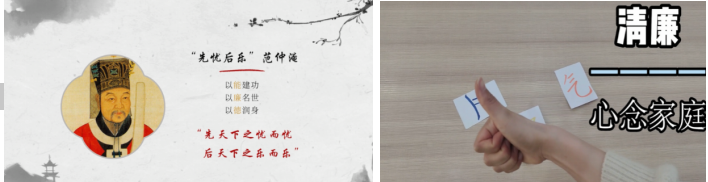 “先忧后乐”范仲淹
以能建功
以廉名世
以德润身
“先天下之忧而忧
后天下之乐而乐”
清廉
心念家庭
气